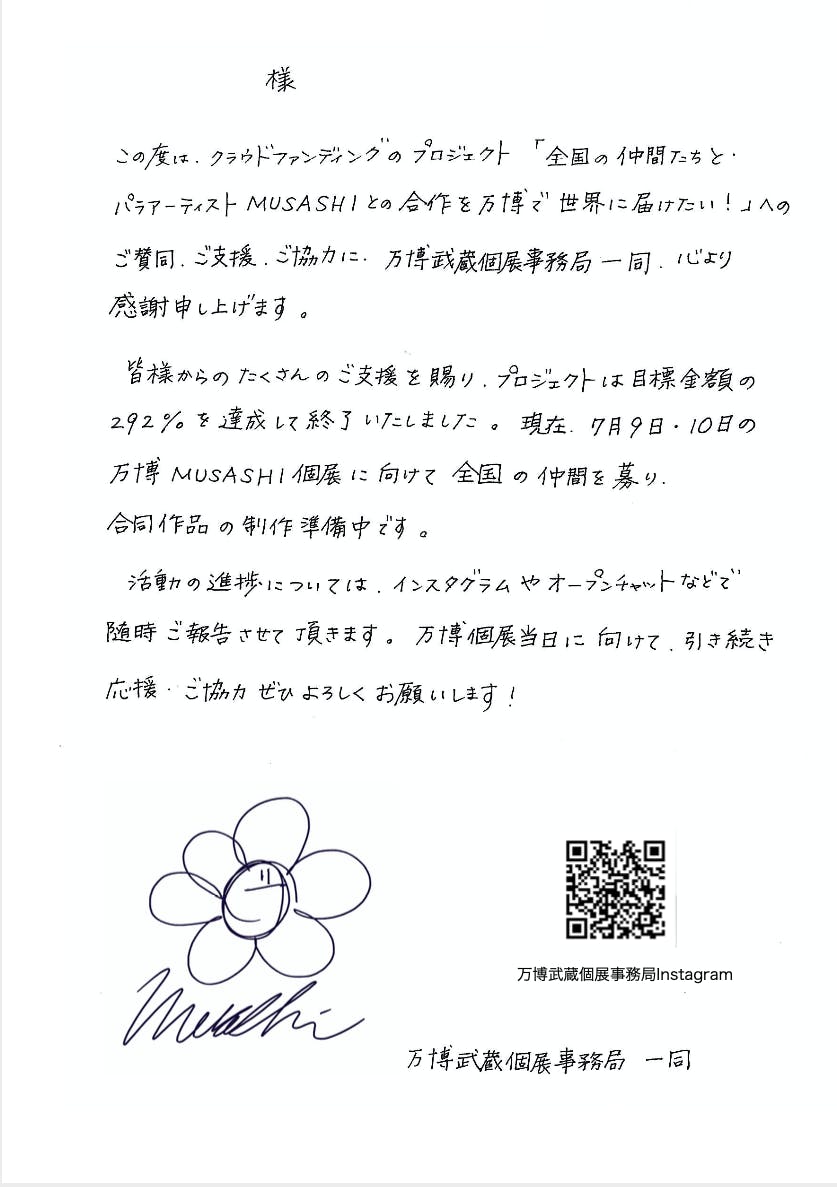 様
この度は、クラウドファンディングのプロジェクト「全国の仲間たちと・
パラアーティストMUSASHIとの合作を万博で世界に届けたい！」への
ご賛同、ご支援、ご協力に、万博武蔵個展事務局一同、心より
感謝申し上げます。
皆様からのたくさんのご支援を賜り、プロジェクトは目標金額の
292%を達成して終了いたしました。現在、7月9日・10日の
万博MUSASHI個展に向けて全国の仲間を募り、
合同作品の制作準備中です。
活動の進捗については、インスタグラムやオープンチャットなどで
随時ご報告させて頂きます。万博個展当日に向けて、引き続き
応援・ご協力ぜひよろしくお願いします！
Musashi
万博武蔵個展事務局Instagram
万博武蔵個展事務局 一同